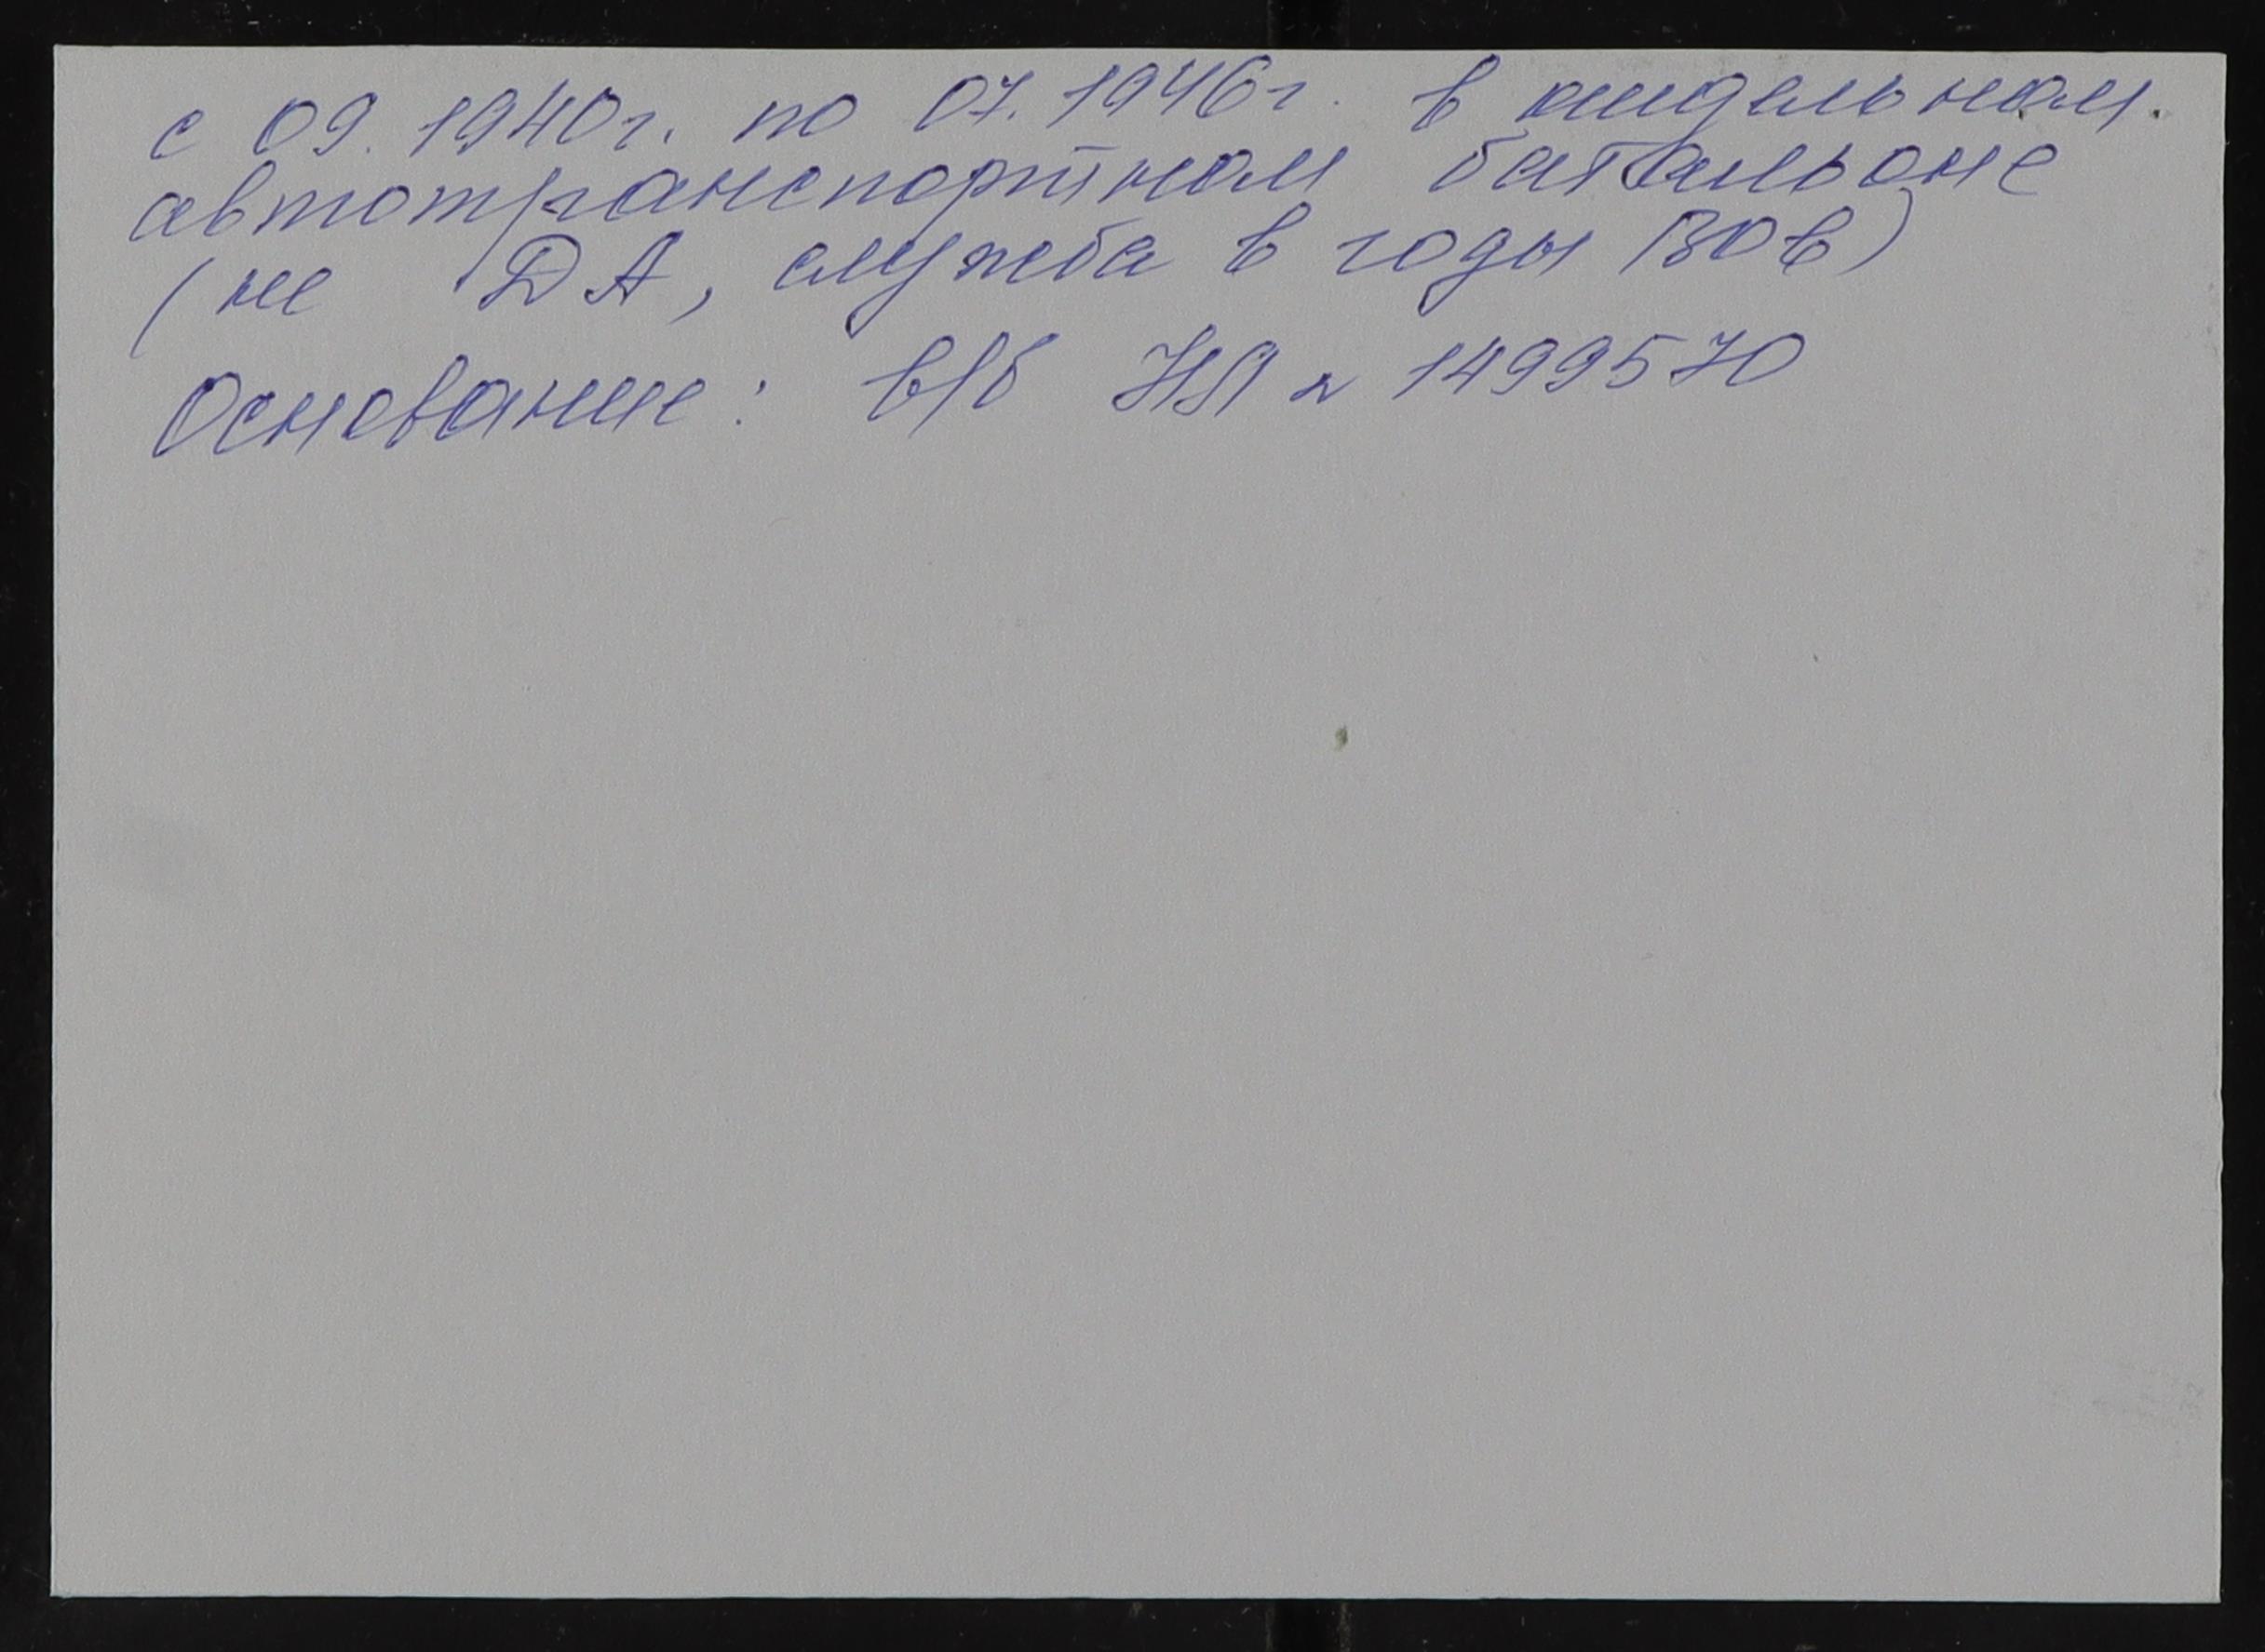 с 09. 1940г. по 07. 1946г. в отдельном
автотранспортном батальоне
(не ДА, служба в годы ВОв)
Основание: в/б НЯ № 1499570